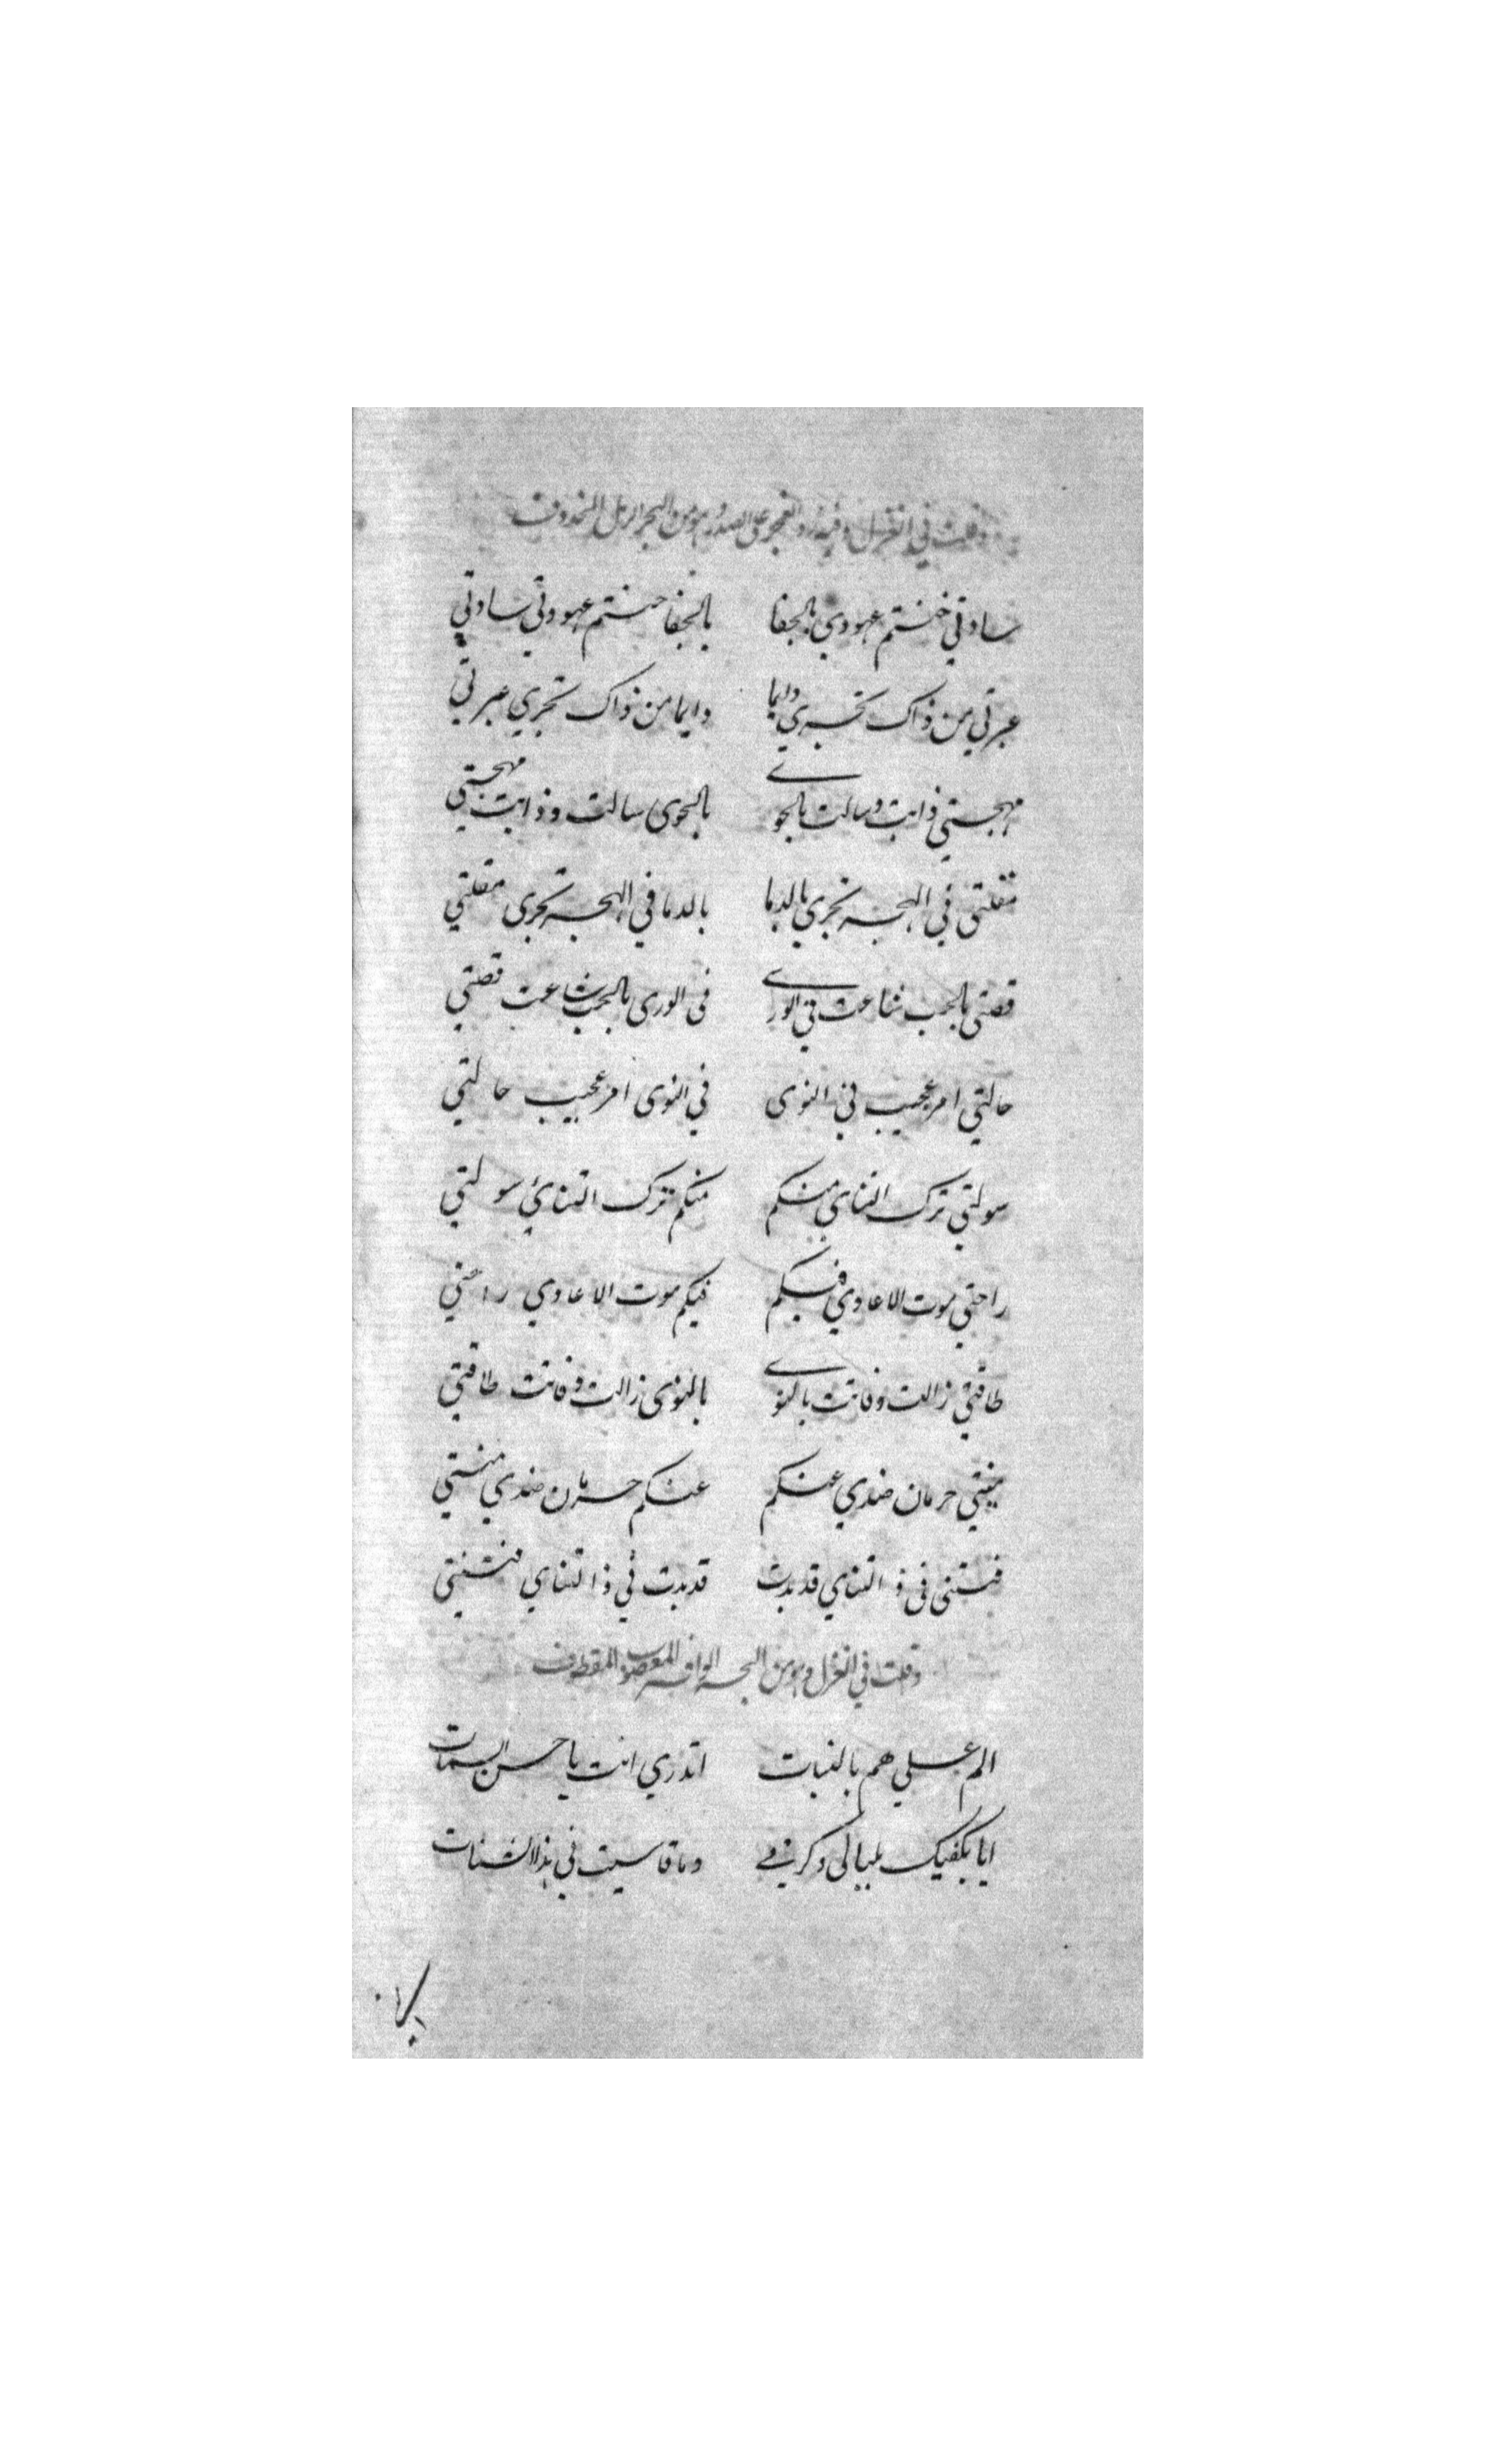 وقلت في الغزل وفيه رد العجز على الصدر وهو من البحر الرمل المحذوف
سادتي خنتم عهودي بالجفا بالجفا خنتم عهودي سادتي
عبرتي من ذاك تجري دايما دايما من ذاك تجري عبرتي
مهجتي ذابت وسالت بالجوى بالجوى سالت وذابت مهجتي
مقلتي في الهجر تجري بالدما بالدما في الهجر تجري مقلتي
قصتي بالحب شاعت في الورى في الورى بالحب شاعت قصتي
حالتي امر عجيب في النوى في النوى امر عجيب حالتي
سولتي ترك التناي منكم منكم ترك التنائ سولتي
راحتي موت الاعادي فيكم فيكم موت الاعادي راحتي
طاقتي زالت وفاتت بالنوى بالنوى زالت وفاتت طاقتي
منيتي حرمان ضدي عنكم عنكم حرمان ضدي منيتي
فتنتي في ذا التناي قد بدت قد بدت في ذا التناي فتنتي
وقلت في الغزل وهو من البحر الوافر المعصوب المقطوف
الم علي هم بالنبات اتدري انت يا حسن السمات
ايا يكفيك بلبالي وكربي وما قاسيت في هذا الشتات